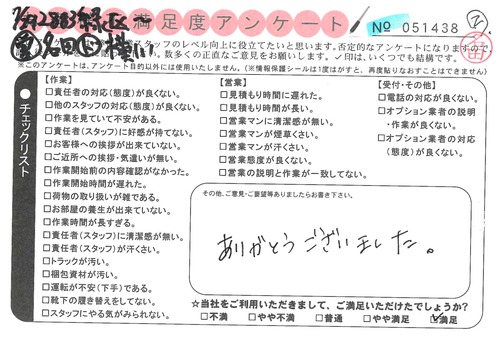 満足度アンケート
No 051438
スタッフのレベル向上に役立てたいと思います。否定的なアンケートになりますので
数多くの正直なご意見をお願いします。✓印は、いくつでも結構です。
※このアンケートは、アンケート目的以外には使用いたしません。(※情報保護シールは1度はがすと、再度貼りなおすことはできません)
チェックリスト
【作業】
□責任者の対応(態度)が良くない。
□他のスタッフの対応(態度)が良くない。
□作業を見ていて不安がある。
□責任者(スタッフ)に好感が持てない。
□お客様への挨拶が出来ていない。
□ご近所への挨拶・気遣いが無い。
□作業開始前の内容確認がなかった。
□作業開始時間が遅れた。
□荷物の取り扱いが雑である。
□お部屋の養生が出来ていない。
□作業時間が長すぎる。
□責任者(スタッフ)に清潔感が無い。
□責任者(スタッフ)が汗くさい。
□トラックが汚い。
□梱包資材が汚い。
□運転が不安(下手)である。
□靴下の履き替えをしてない。
□スタッフにやる気がみられない。
【営業】
□見積もり時間に遅れた。
□見積もり時間が長い。
□営業マンに清潔感が無い。
□営業マンが煙草くさい。
□営業マンが汗くさい。
□営業態度が良くない。
□営業の説明と作業が一致してない。
【受付・その他】
□電話の対応が良くない。
□オプション業者の説明
・作業が良くない。
□オプション業者の対応
(態度)が良くない。
その他、ご意見・ご要望等ありましたらお書き下さい。
ありがとうございました。
☆当社をご利用いただきまして、ご満足いただけたでしょうか?
□不満 □やや不満 □普通 □やや満足 ☑満足